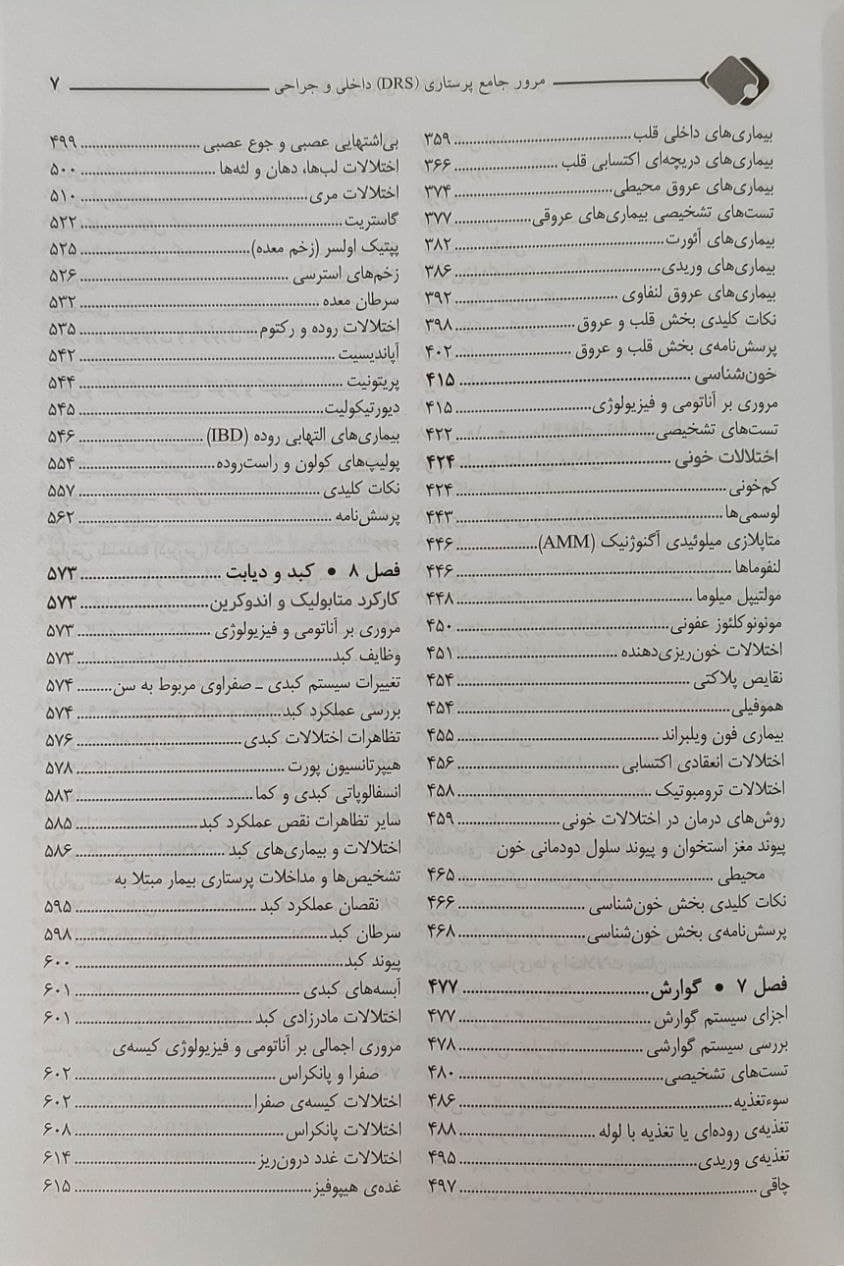 مرور جامع پرستاری (DRS) داخلی و جراحی ۷
بیماری‌های داخلی قلب ۳۵۹
بیماری‌های دریچه‌ای اکتسابی قلب ۳۶۶
بیماری‌های عروق محیطی ۳۷۴
تست‌های تشخیصی بیماری‌های عروقی ۳۷۷
بیماری‌های آئورت ۳۸۲
بیماری‌های وریدی ۳۸۶
بیماری‌های عروق لنفاوی ۳۹۲
نکات کلیدی بخش قلب و عروق ۳۹۸
پرسش‌نامه‌ی بخش قلب و عروق ۴۰۲
خون‌شناسی ۴۱۵
مروری بر آناتومی و فیزیولوژی ۴۱۵
تست‌های تشخیصی ۴۲۲
اختلالات خونی ۴۲۴
کم‌خونی ۴۲۴
لوسمی‌ها ۴۴۳
متاپلازی میلوئیدی آگنوژنیک (AMM) ۴۴۶
لنفوماها ۴۴۶
مولتیپل میلوما ۴۴۸
مونونوکلئوز عفونی ۴۵۰
اختلالات خون‌ریزی‌دهنده ۴۵۱
نقایص پلاکتی ۴۵۴
هموفیلی ۴۵۴
بیماری فون ویلبراند ۴۵۵
اختلالات انعقادی اکتسابی ۴۵۶
اختلالات ترومبوتیک ۴۵۸
روش‌های درمان در اختلالات خونی ۴۵۹
پیوند مغز استخوان و پیوند سلول دودمانی خون
محیطی ۴۶۵
نکات کلیدی بخش خون‌شناسی ۴۶۶
پرسش‌نامه‌ی بخش خون‌شناسی ۴۶۸
فصل ۷ • گوارش ۴۷۷
اجزای سیستم گوارش ۴۷۷
بررسی سیستم گوارشی ۴۷۸
تست‌های تشخیصی ۴۸۰
سوءتغذیه ۴۸۶
تغذیه‌ی روده‌ای یا تغذیه با لوله ۴۸۸
تغذیه‌ی وریدی ۴۹۵
چاقی ۴۹۷
بی‌اشتهایی عصبی و جوع عصبی ۴۹۹
اختلالات لب‌ها، دهان و لثه‌ها ۵۰۰
اختلالات مری ۵۱۰
گاستریت ۵۲۲
پپتیک اولسر (زخم معده) ۵۲۵
زخم‌های استرسی ۵۲۶
سرطان معده ۵۳۲
اختلالات روده و رکتوم ۵۳۵
آپاندیسیت ۵۴۲
پریتونیت ۵۴۴
دیورتیکولیت ۵۴۵
بیماری‌های التهابی روده (IBD) ۵۴۶
پولیپ‌های کولون و راست‌روده ۵۵۴
نکات کلیدی ۵۵۷
پرسش‌نامه ۵۶۲
فصل ۸ • کبد و دیابت ۵۷۳
کارکرد متابولیک و اندوکرین ۵۷۳
مروری بر آناتومی و فیزیولوژی ۵۷۳
وظایف کبد ۵۷۳
تغییرات سیستم کبدی ـ صفراوی مربوط به سن ۵۷۴
بررسی عملکرد کبد ۵۷۴
تظاهرات اختلالات کبدی ۵۷۶
هیپرتانسیون پورت ۵۷۸
انسفالوپاتی کبدی و کما ۵۸۳
سایر تظاهرات نقص عملکرد کبد ۵۸۵
اختلالات و بیماری‌های کبد ۵۸۶
تشخیص‌ها و مداخلات پرستاری بیمار مبتلا به
نقصان عملکرد کبد ۵۹۵
سرطان کبد ۵۹۸
پیوند کبد ۶۰۰
آبسه‌های کبدی ۶۰۱
اختلالات مادرزادی کبد ۶۰۱
مروری اجمالی بر آناتومی و فیزیولوژی کیسه‌ی
صفرا و پانکراس ۶۰۲
اختلالات کیسه‌ی صفرا ۶۰۲
اختلالات پانکراس ۶۰۸
اختلالات غدد درون‌ریز ۶۱۴
غده‌ی هیپوفیز ۶۱۵